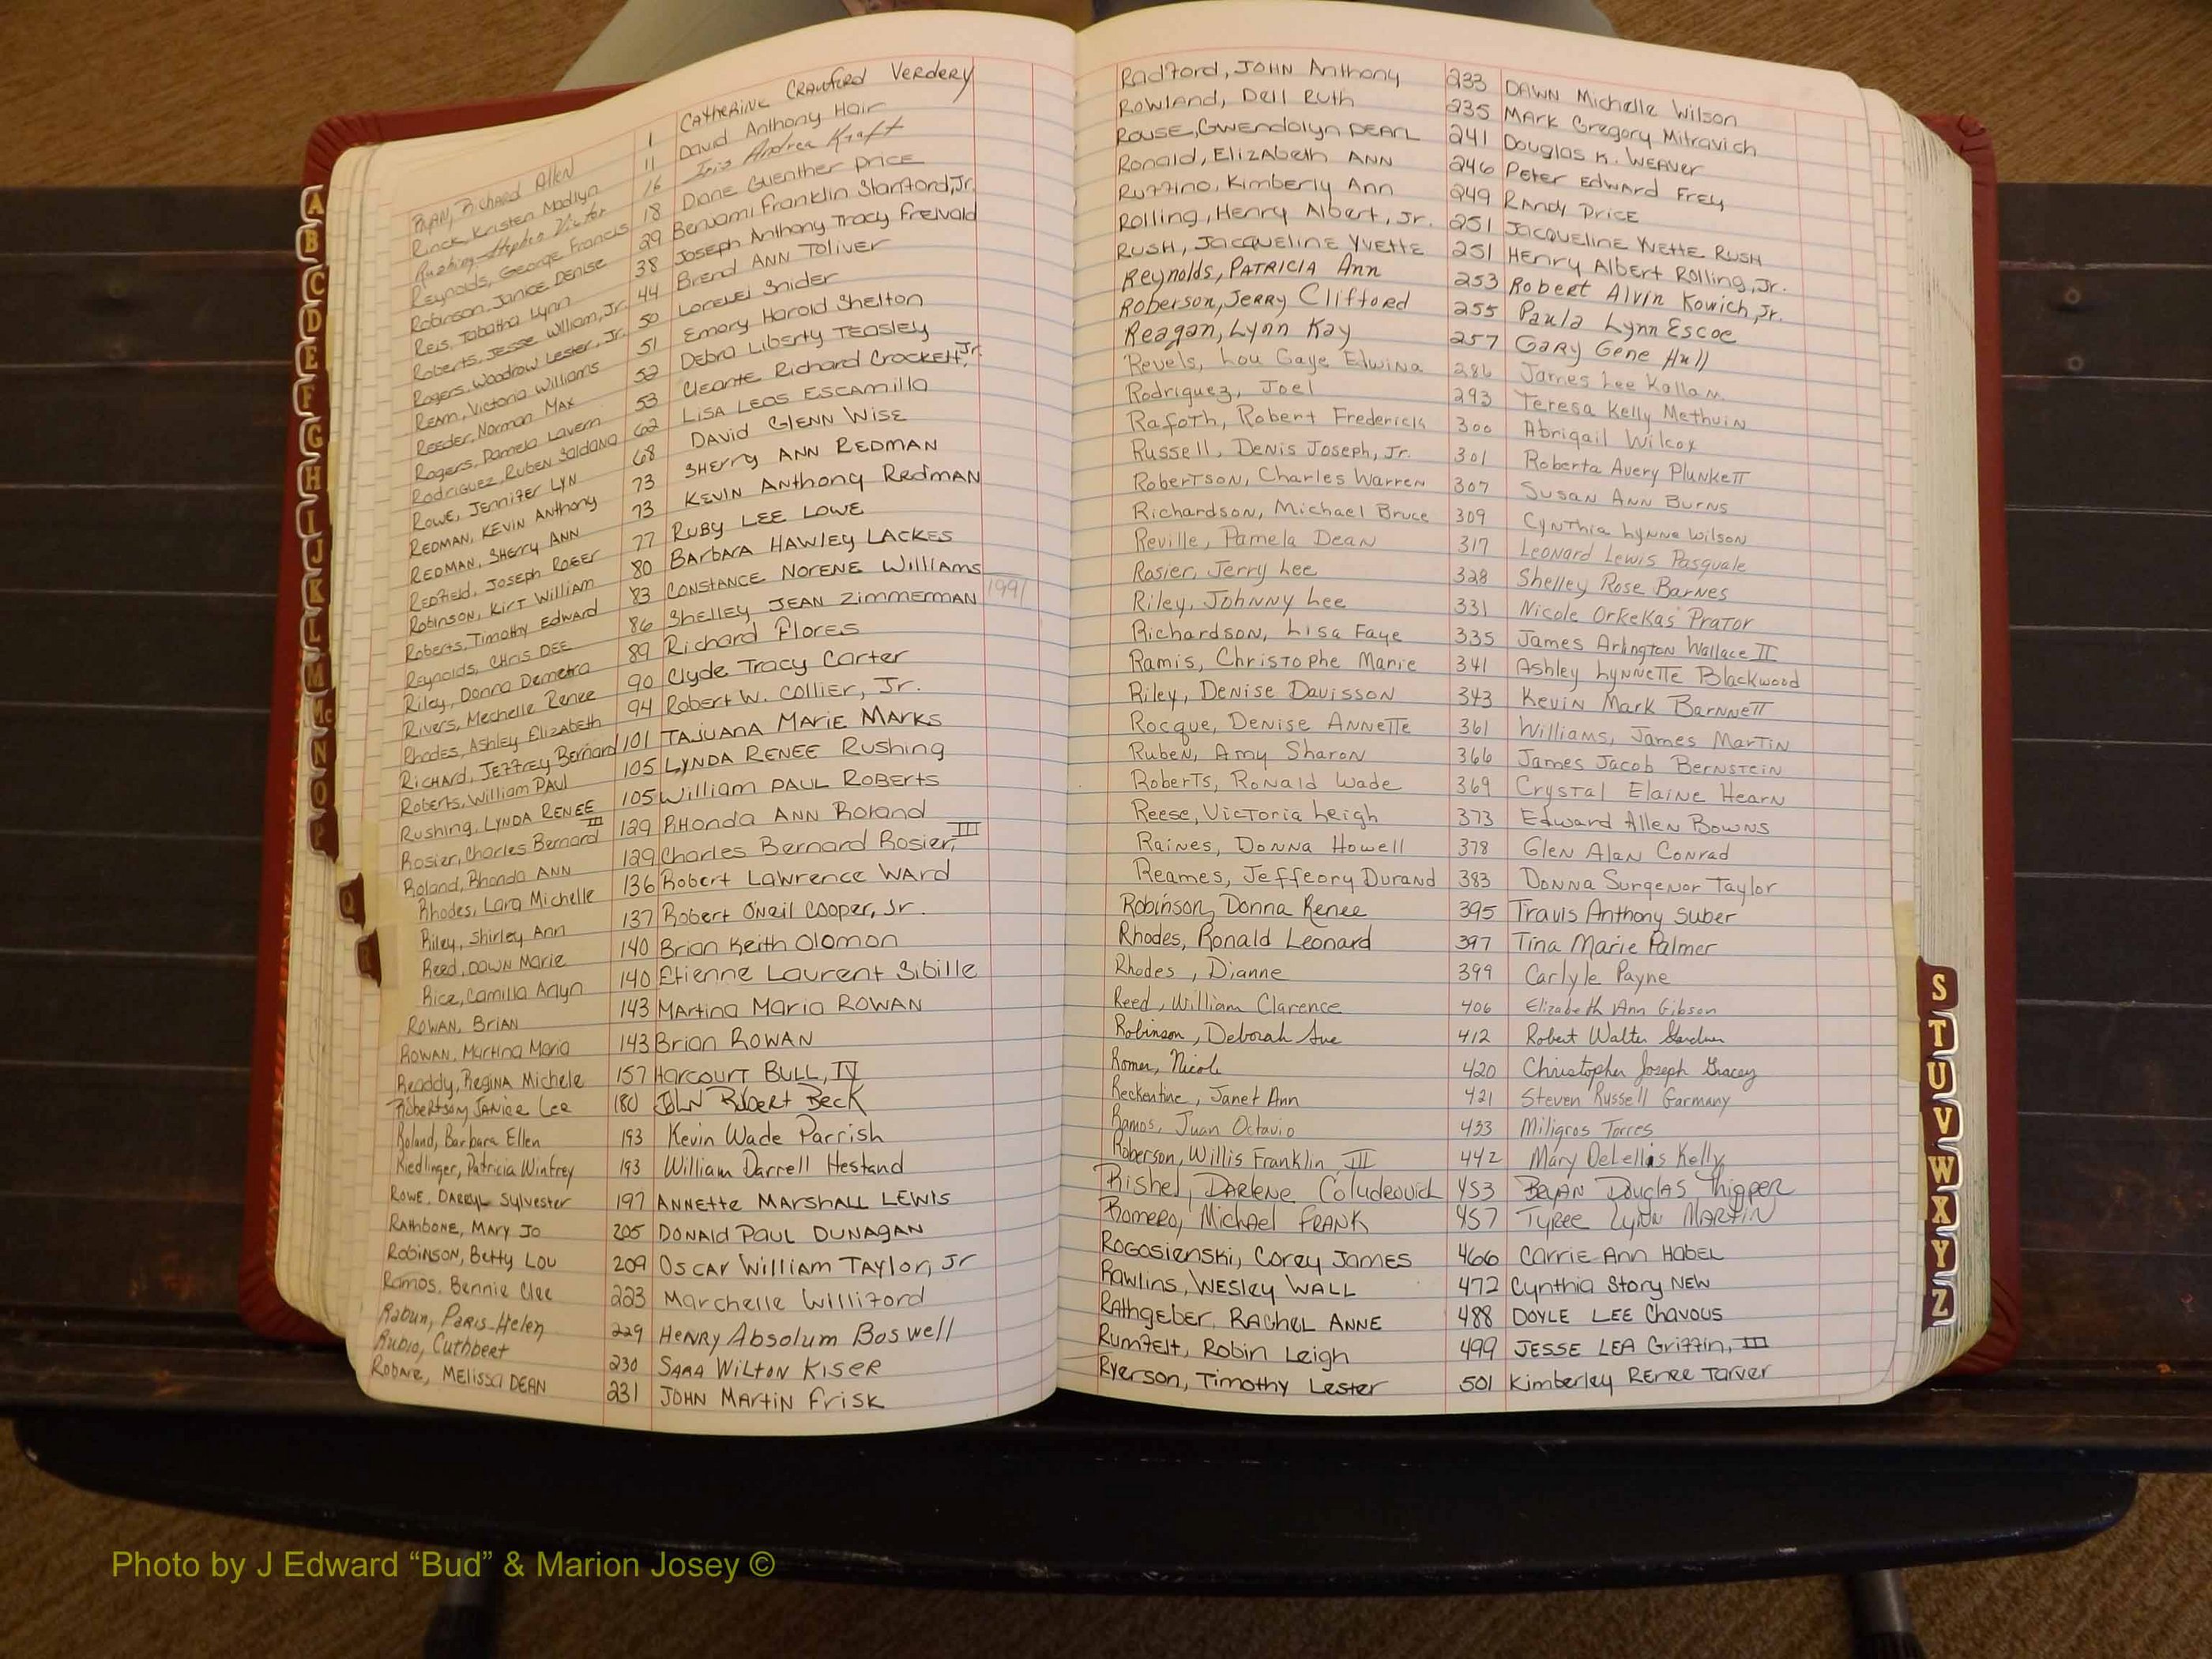 A
B
C
D
E
F
G
H
I
J
K
L
M
Mc
N
O
P
Q
R
Ryan, Richard Allen 1 Catherine Crawford Verdery
Rinck, Kristen Madlyn 11 David Anthony Hair
Rushing, Stephen Victor 16 Iris Andrea Kraft
Reynolds, George Francis 18 Diane Guenther Price
Robinson, Janice Denise 29 Benjami Franklin Stanford, Jr.
Reis, Tabatha Lynn 38 Joseph Anthony Tracy Freivald
Roberts, Jesse William, Jr. 44 Brend Ann Toliver
Rogers, Woodrow Lester, Jr. 50 Lorelei Snider
Ream, Victoria Williams 51 Emory Harold Shelton
Reeder, Norman Max 52 Debra Liberty Teasley
Rogers, Pamela Lavern 53 Cleante Richard Crockett, Jr.
Rodriguez, Ruben Saldana 62 Lisa Leos Escamilla
Rowe, Jennifer Lyn 68 David Glenn Wise
Redman, Kevin Anthony 73 Sherry Ann Redman
Redman, Sherry Ann 73 Kevin Anthony Redman
Redfield, Joseph Roger 77 Ruby Lee Lowe
Robinson, Kirt William 80 Barbara Hawley Lackes
Roberts, Timothy Edward 83 Constance Norene Williams 1991
Reynolds, Chris Dee 86 Shelley Jean Zimmerman
Riley, Donna Demetra 89 Richard Flores
Rivers, Mechelle Renee 90 Clyde Tracy Carter
Rhodes, Ashley Elizabeth 94 Robert W. Collier, Jr.
Richard, Jeffrey Bernard 101 Tajuana Marie Marks
Roberts, William Paul 105 Lynda Renee Rushing
Rushing, Lynda Renee 105 William Paul Roberts
Rosier, Charles Bernard III 129 Rhonda Ann Roland
Roland, Rhonda Ann 129 Charles Bernard Rosier, III
Rhodes, Lara Michelle 136 Robert Lawrence Ward
Riley, Shirley Ann 137 Robert O'Neil Cooper, Jr.
Reed, Dawn Marie 140 Brian Keith Olomon
Rice, Camilla Arlyn 140 Etienne Laurent Sibille
Rowan, Brian 143 Martina Maria Rowan
Rowan, Martina Maria 143 Brian Rowan
Readdy, Regina Michele 157 Harcourt Bull, IV
Robertson, Janice Lee 180 John Robert Beck
Roland, Barbara Ellen 193 Kevin Wade Parrish
Riedlinger, Patricia Winfrey 193 William Darrell Hestand
Rowe, Darryl Sylvester 197 Annette Marshall Lewis
Rathbone, Mary Jo 205 Donald Paul Dunagan
Robinson, Betty Lou 209 Oscar William Taylor, Jr
Ramos, Bennie Clee 223 Marchelle Williford
Rabun, Paris Helen 229 Henry Absolum Boswell
Rubio, Cuthbert 230 Sara Wilton Kiser
Melissa Dean 231 John Martin Frisk
Radford, John Anthony 233 Dawn Michelle Wilson
Rowland, Dell Ruth 235 Mark Gregory Mitravich
Rouse, Gwendolyn Pearl 241 Douglas K. Weaver
Ronald, Elizabeth Ann 246 Peter Edward Frey
Ruffino, Kimberly Ann 249 Randy Price
Rolling, Henry Albert, Jr. 251 Jacqueline Yvette Rush
Rush, Jacqueline Yvette 251 Henry Albert Rolling, Jr.
Reynolds, Patricia Ann 253 Robert Alvin Kowich, Jr.
Roberson, Jerry Clifford 255 Paula Lynn Escoe
Reagan, Lynn Kay 257 Gary Gene Hull
Revels, Lou Gaye Edwina 286 James Lee Kallam
Rodriquez, Joel 293 Teresa Kelly Methvin
Rafoth, Robert Frederick 300 Abrigail Wilcox
Russell, Denis Joseph, Jr. 301 Roberta Avery Plunkett
Robertson, Charles Warren 307 Susan Ann Burns
Richardson, Michael Bruce 309 Cynthia Lynne Wilson
Reville, Pamela Dean 317 Leonard Lewis Pasquale
Rosier, Jerry Lee 328 Shelley Rose Barnes
Riley, Johnny Lee 331 Nicole Orkekas Prator
Richardson, Lisa Faye 335 James Arlington Wallace II
Ramis, Christophe Marie 341 Ashley Lynnette Blackwood
Riley, Denise Davisson 343 Kevin Mark Barnnett
Rocque, Denise Annette 361 Williams, James Martin
Ruben, Amy Sharon 366 James Jacob Bernstein
Roberts, Ronald Wade 369 Crystal Elaine Hearn
Reese, Victoria Leigh 373 Edward Allen Bowns
Raines, Donna Howell 378 Glen Alan Conrad
Reames, Jeffeory Durand 383 Donna Surgenor Taylor
Robinson, Donna Renee 395 Travis Anthony Suber
Rhodes, Ronald Leonard 397 Tina Marie Palmer
Rhodes, Dianne 399 Carlyle Payne
Reed, William Clarence 406 Elizabeth Ann Gibson
Robinson, Deborah Sue 412 Robert Walter Gardner
Romer, Nicole 420 Christopher Joseph Gracey
Reckentine, Janet Ann 421 Steven Russell Garmany
Ramos, Juan Octavio 433 Miligros Torres
Roberson, Willis Franklin III 442 Mary DeLellis Kelly
Rishel, Darlene 453 Bryan Douglas Thigpen
Romero, Michael Frank 457 Tyree Lynn Martin
Rogosienski, Corey James 466 Carrie Ann Habel
Rawlins, Wesley Wall 472 Cynthia Story New
Rathgeber, Rachel Anne 488 Doyle Lee Chavous
Rumfelt, Robin Leigh 499 Jesse Lea Griffin, III
Ryerson, Timothy Lester 501 Kimberley Renee Tarver
S
T
U
V
W
X
Y
Z
Photo by J Edward “Bud” & Marion Josey ©